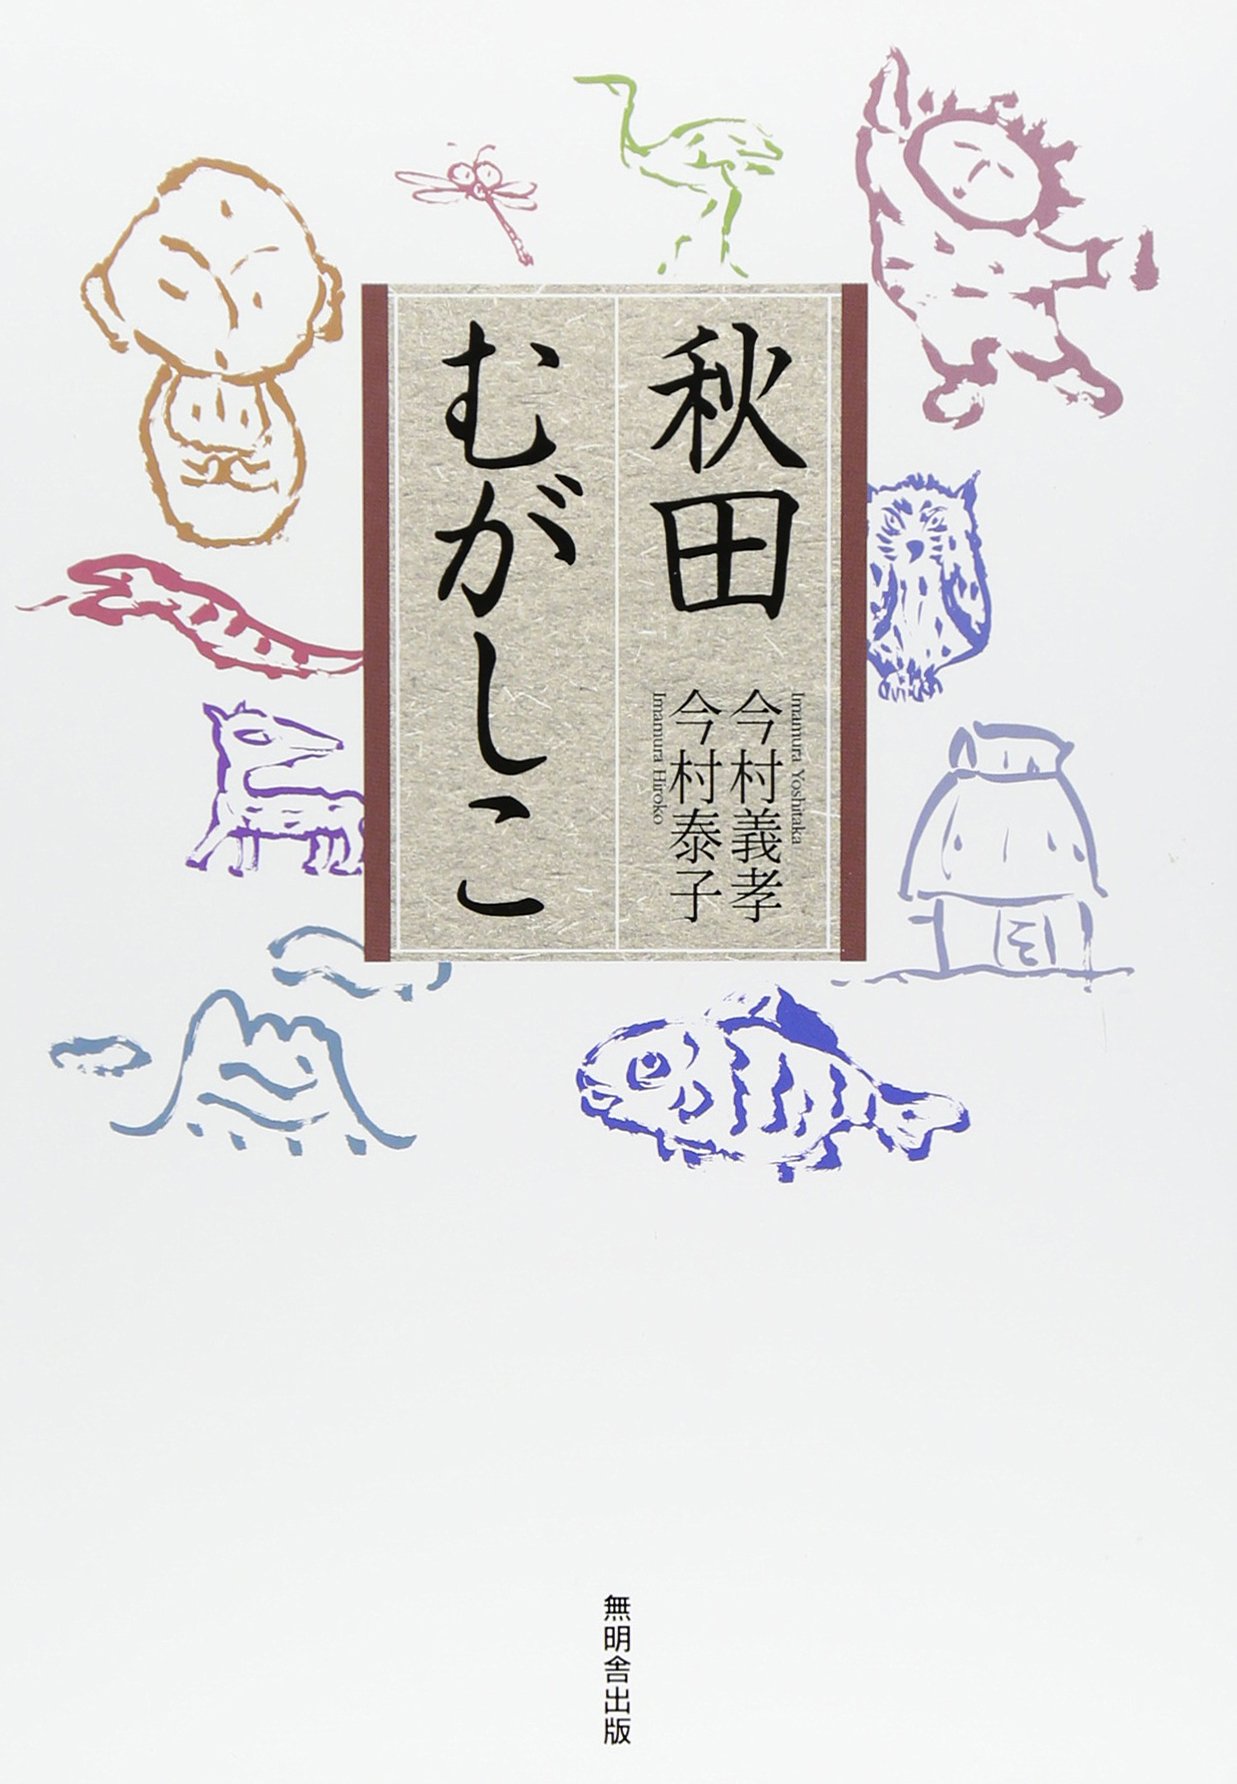 秋田
むがしこ
Imamura Yoshitaka
今村義孝
今村泰子
Imamura Hiroko
無明舎出版